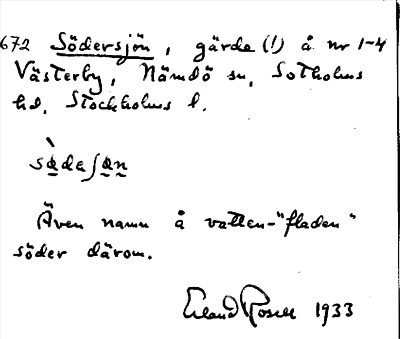 672 Södersjön, gärde (!) å nr 1-4
Västerby, Nämdö sn, Sotholms
hd, Stockholms l.
sø̀deʃøn
Även namn å vatten-"fladen"
söder därom.
Erland Rosell 1933